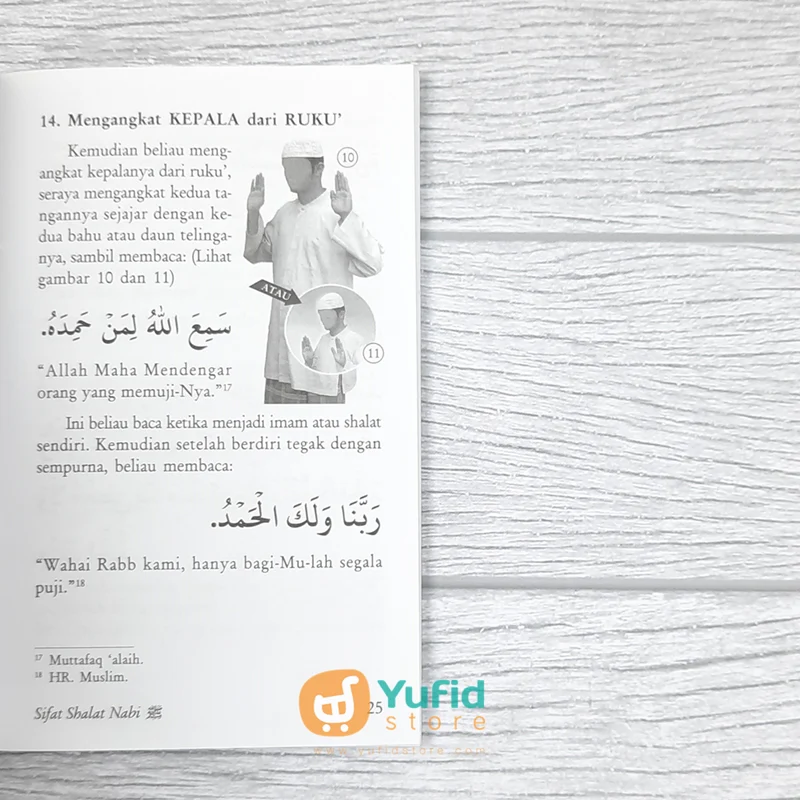 14. Mengangkat KEPALA dari RUKU'
Kemudian beliau meng-
angkat kepalanya dari ruku',
seraya mengangkat kedua ta-
ngannya sejajar dengan ke-
dua bahu atau daun telinga-
nya, sambil membaca: (Lihat
gambar 10 dan 11)
10
ATAU
11
سَمِعَ اللهُ لِمَنْ حَمِدَهُ.
“Allah Maha Mendengar
orang yang memuji-Nya.”¹⁷
Ini beliau baca ketika menjadi imam atau shalat
sendiri. Kemudian setelah berdiri tegak dengan
sempurna, beliau membaca:
رَبَّنَا وَلَكَ الْحَمْدُ.
“Wahai Rabb kami, hanya bagi-Mu-lah segala
puji.”¹⁸
¹⁷ Muttafaq ‘alaih.
¹⁸ HR. Muslim.
Sifat Shalat Nabi ﷺ
25
Yufid
store
www.yufidstore.com